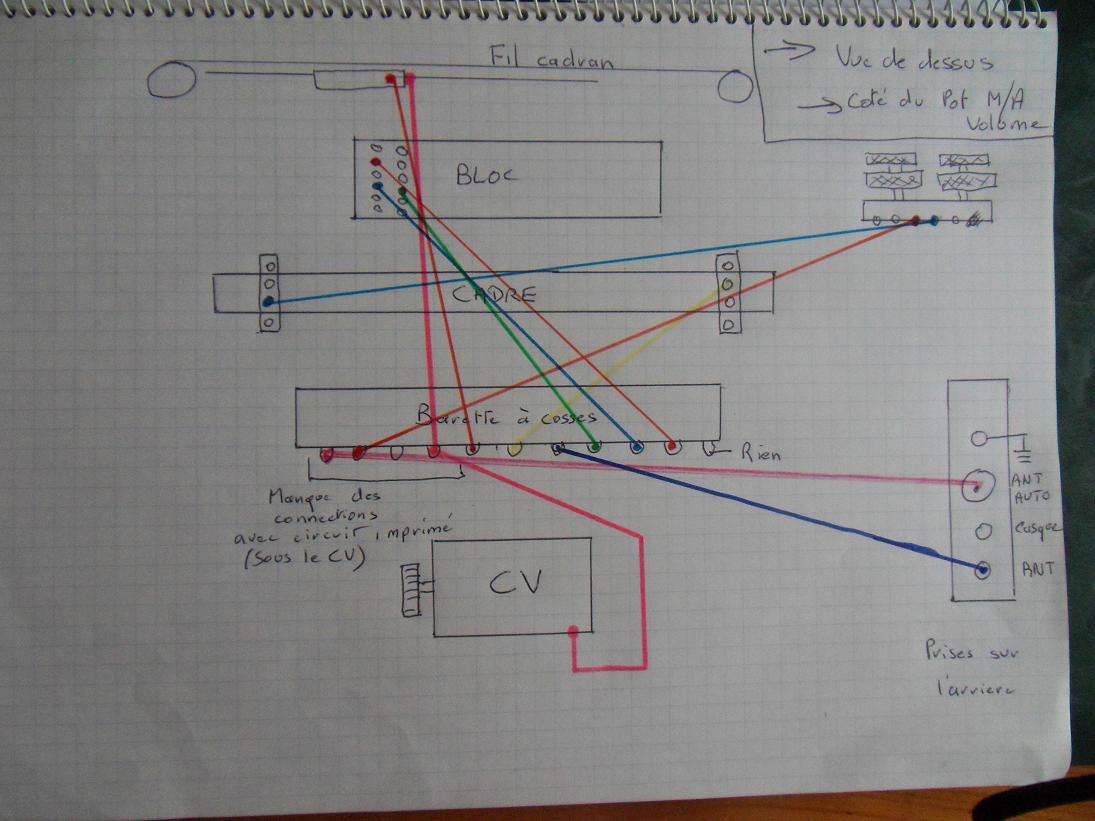 Fil cadran
→ Vue de dessus
→ Coté du Pot M/A
Volume
BLOC
CADRE
Barette à cosses
Rien
Manque des
connections
avec circuit imprimé
(Sous le CV)
CV
ANT
AUTO
Casque
ANT
Prises sur
l'arriere